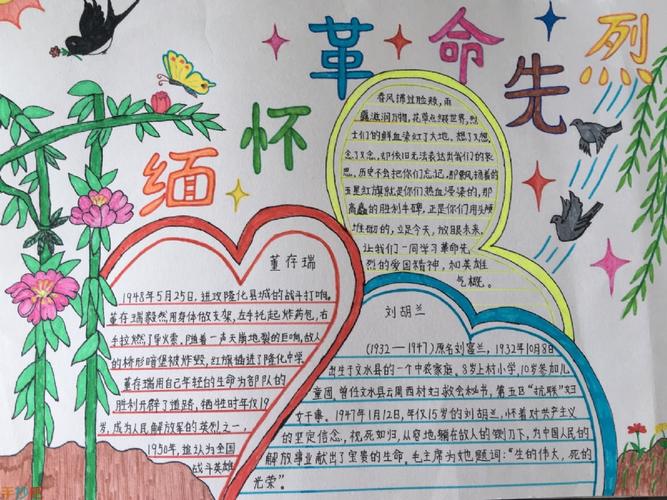 缅怀革命先烈
春风拂过脸颊,雨
露滋润万物,花草点缀世界,烈
士们的鲜血染红了大地。想了又想,
念了又念,却依旧无法表达出我们的哀
思。历史不会把你们忘记,那飘扬着的
五星红旗就是你们热血浸染的,那
高矗的胜利丰碑,正是你们用头颅
堆砌的,立足今天,放眼未来,
让我们一同学习革命先
烈的爱国精神,和英雄
气概。
董存瑞
1948年5月25日,进攻隆化县城的战斗打响。
董存瑞毅然用身体做支架,左手托起炸药包,右
手拉燃了导火索,随着一声天崩地裂的巨响,敌人
的桥形暗堡被炸毁,红旗插进了隆化中学。
董存瑞用自己年轻的生命为部队的
胜利开辟了道路,牺牲时年仅19
岁,成为人民解放军的英烈之一,
1950年,追认为全国
战斗英雄
刘胡兰
(1932—1947)原名刘富兰,1932年10月8日
出生于文水县的一个中农家庭。8岁上村小学,10岁参加儿
童团,曾任文水县云周西村妇救会秘书,第五区“抗联”妇
女干事。1947年1月12日,年仅15岁的刘胡兰,怀着对共产主义
的坚定信念,视死如归,从容地躺在敌人的铡刀下,为中国人民的
解放事业献出了宝贵的生命。毛主席为她题词:“生的伟大,死的
光荣”。